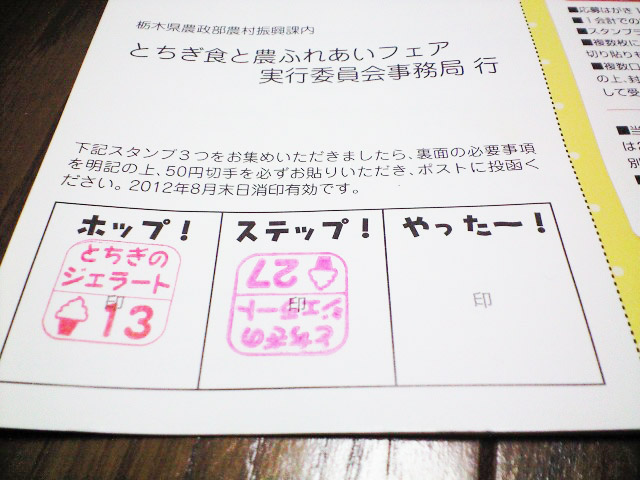 栃木県農政部農村振興課内
とちぎ食と農ふれあいフェア
実行委員会事務局 行
下記スタンプ3つをお集めいただきましたら、裏面の必要事項
を明記の上、50円切手を必ずお貼りいただき、ポストに投函く
ださい。2012年8月末日消印有効です。
ホップ!
ステップ!
やったー!
とちぎの
ジェラート
印
13
とちぎの
ジェラート
印
27
印
■応募はがき1
■1会計での
■スタンプラ
■複数枚に
切り貼りも
■複数口
の上、封
して受
■当
は2
別